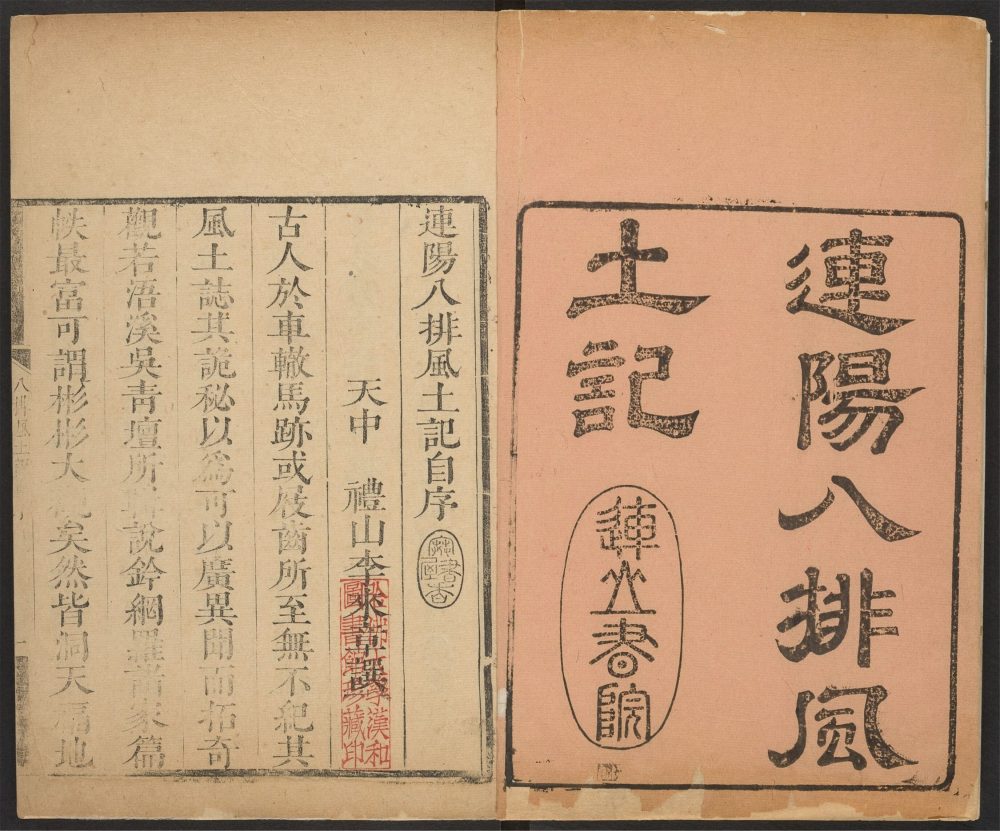 連陽八排風
土記
連山書院
連陽八排風土記自序
天中 禮山李來章撰
漢和
圖書 藏印
古人於車轍馬跡或屐齒所至無不紀其
風土誌其詭秘以為可以廣異聞而拓奇
觀若浯溪吳青壇所 說鈴網羅諸家篇
帙最富可謂彬彬大 矣然皆洞天福地